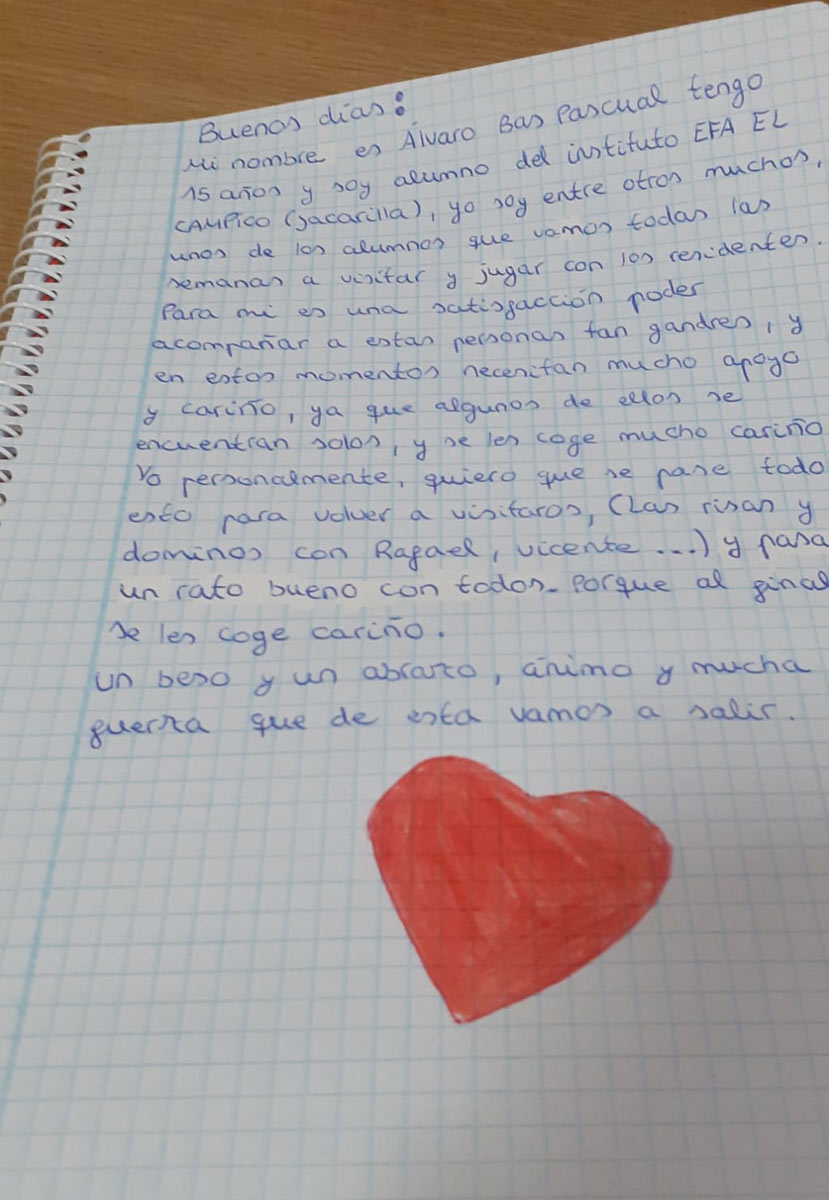 Buenos días:
Mi nombre es Álvaro Bas Pascual tengo
15 años y soy alumno del instituto EFA EL
CAMPICO (Jacarilla), yo soy entre otros muchos,
unos de los alumnos que vamos todas las
semanas a visitar y jugar con los residentes.
Para mi es una satisfacción poder
acompañar a estas personas tan gandres, y
en estos momentos necesitan mucho apoyo
y cariño, ya que algunos de ellos se
encuentran solos, y se les coge mucho cariño
Yo personalmente, quiero que se pase todo
esto para volver a visitaros, (Las risas y
dominos con Rafael, Vicente ...) y pasa
un rato bueno con todos. Porque al final
se les coge cariño.
Un beso y un abrazo, ánimo y mucha
fuerza que de esta vamos a salir.